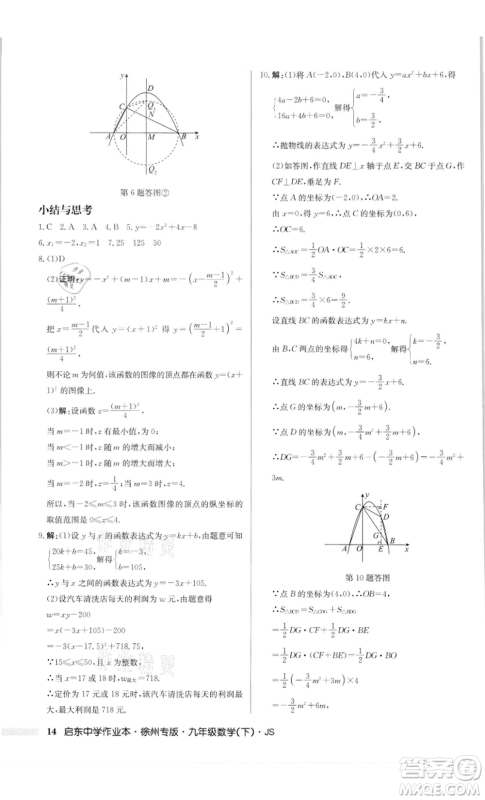 第6题答图②
小结与思考
1. C 2. A 3. A 4. B 5. y=-2x²+4x-8
6. x₁=-2, x₂=1 7. 125 50
8. (1)D
(2)证明: y=-x²+(m-1)x+m=-(x-\frac{m-1}{2})²+
\frac{(m+1)²}{4}.
把 x=\frac{m-1}{2} 代入 y=(x+1)² 得 y=(\frac{m-1}{2}+1)²
=\frac{(m+1)²}{4},
则不论 m 为何值,该函数的图像的顶点都在函数 y=(x+
1)² 的图像上.
(3)解:设函数 z=\frac{(m+1)²}{4}.
当 m=-1 时,z 有最小值 0.
当 m<-1 时,z 随 m 的增大而减小.
当 m>-1 时,z 随 m 的增大而增大.
所以,当 -2≤m≤3 时,该函数图像的顶点的纵坐标的
取值范围是 0≤z≤4.
9. 解:(1)设 y 与 x 的函数表达式为 y=kx+b,由题意可知
{20k+b=45, 25k+b=30, 解得{k=-3, b=105,
∴y 与 x 之间的函数表达式为 y=-3x+105.
(2)设汽车清洗店每天的利润为 w 元,由题意可得
w=xy-200
=x(-3x+105)-200
=-3(x-17.5)²+718.75.
∵15≤x≤50,且 x 为整数,
∴当 x=17 或 18 时,w最大=718.
∴定价为 17 元或 18 元时,该汽车清洗店每天的利润
最大,最大利润是 718 元.
10. 解:(1)将 A(-2,0),B(4,0)代入 y=ax²+bx+6,得
{4a-2b+6=0, 16a+4b+6=0, 解得{a=-\frac{3}{4}, b=\frac{3}{2}.
∴抛物线的表达式为 y=-\frac{3}{4}x²+\frac{3}{2}x+6.
(2)如答图,作直线 DE⊥x 轴于点 E,交 BC 于点 G,作
CF⊥DE,垂足为 F.
∵点 A 的坐标为(-2,0),∴OA=2.
由 x=0,得 y=6,∴点 C 的坐标为(0,6).
∴OC=6.
∴S△AOC=\frac{1}{2}OA·OC=\frac{1}{2}×2×6=6.
∴S△BCD=\frac{3}{4}S△AOC=\frac{3}{4}×6=\frac{9}{2}.
设直线 BC 的函数表达式为 y=kx+n,
由 B,C 两点的坐标得{4k+n=0, n=6, 解得{k=-\frac{3}{2}, n=6.
∴直线 BC 的函数表达式为 y=-\frac{3}{2}x+6.
∴点 G 的坐标为(m,-\frac{3}{2}m+6).
∵点 D 的坐标为(m,-\frac{3}{4}m²+\frac{3}{2}m+6),
∴DG=-\frac{3}{4}m²+\frac{3}{2}m+6-(-\frac{3}{2}m+6)=-\frac{3}{4}m²
+3m.
第 10 题答图
∵点 B 的坐标为(4,0),∴OB=4.
∵S△BCD=S△CDG+S△BDG
=\frac{1}{2}DG·CF+\frac{1}{2}DG·BE
=\frac{1}{2}DG(CF+BE)
=\frac{1}{2}DG·BO
14 启东中学作业本·徐州专版·九年级数学(下)·JS